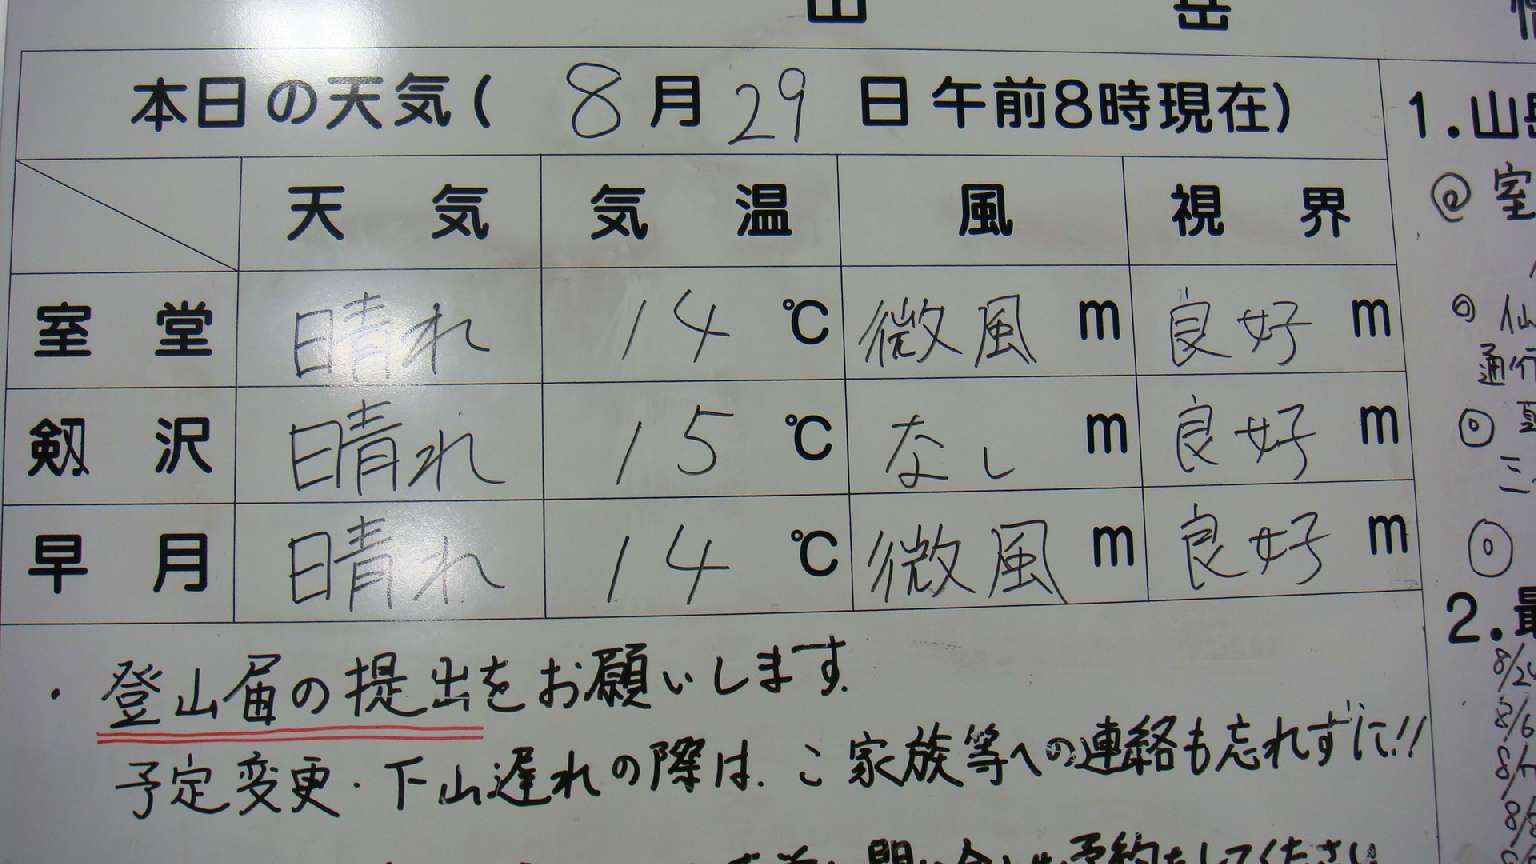 山 岳
本日の天気( 8月29日午前8時現在)
天 気 気 温 風 視 界
室 堂 晴れ 14 ℃ 微風 m 良好 m
剱 沢 晴れ 15 ℃ なし m 良好 m
早 月 晴れ 14 ℃ 微風 m 良好 m
・登山届の提出をお願いします.
予定変更・下山遅れの際は、ご家族等への連絡も忘れずに!!
1.山
◎ 室
◎ 仙
通行
◎
三
◎
2.最
8/2
8/6
8/
8/